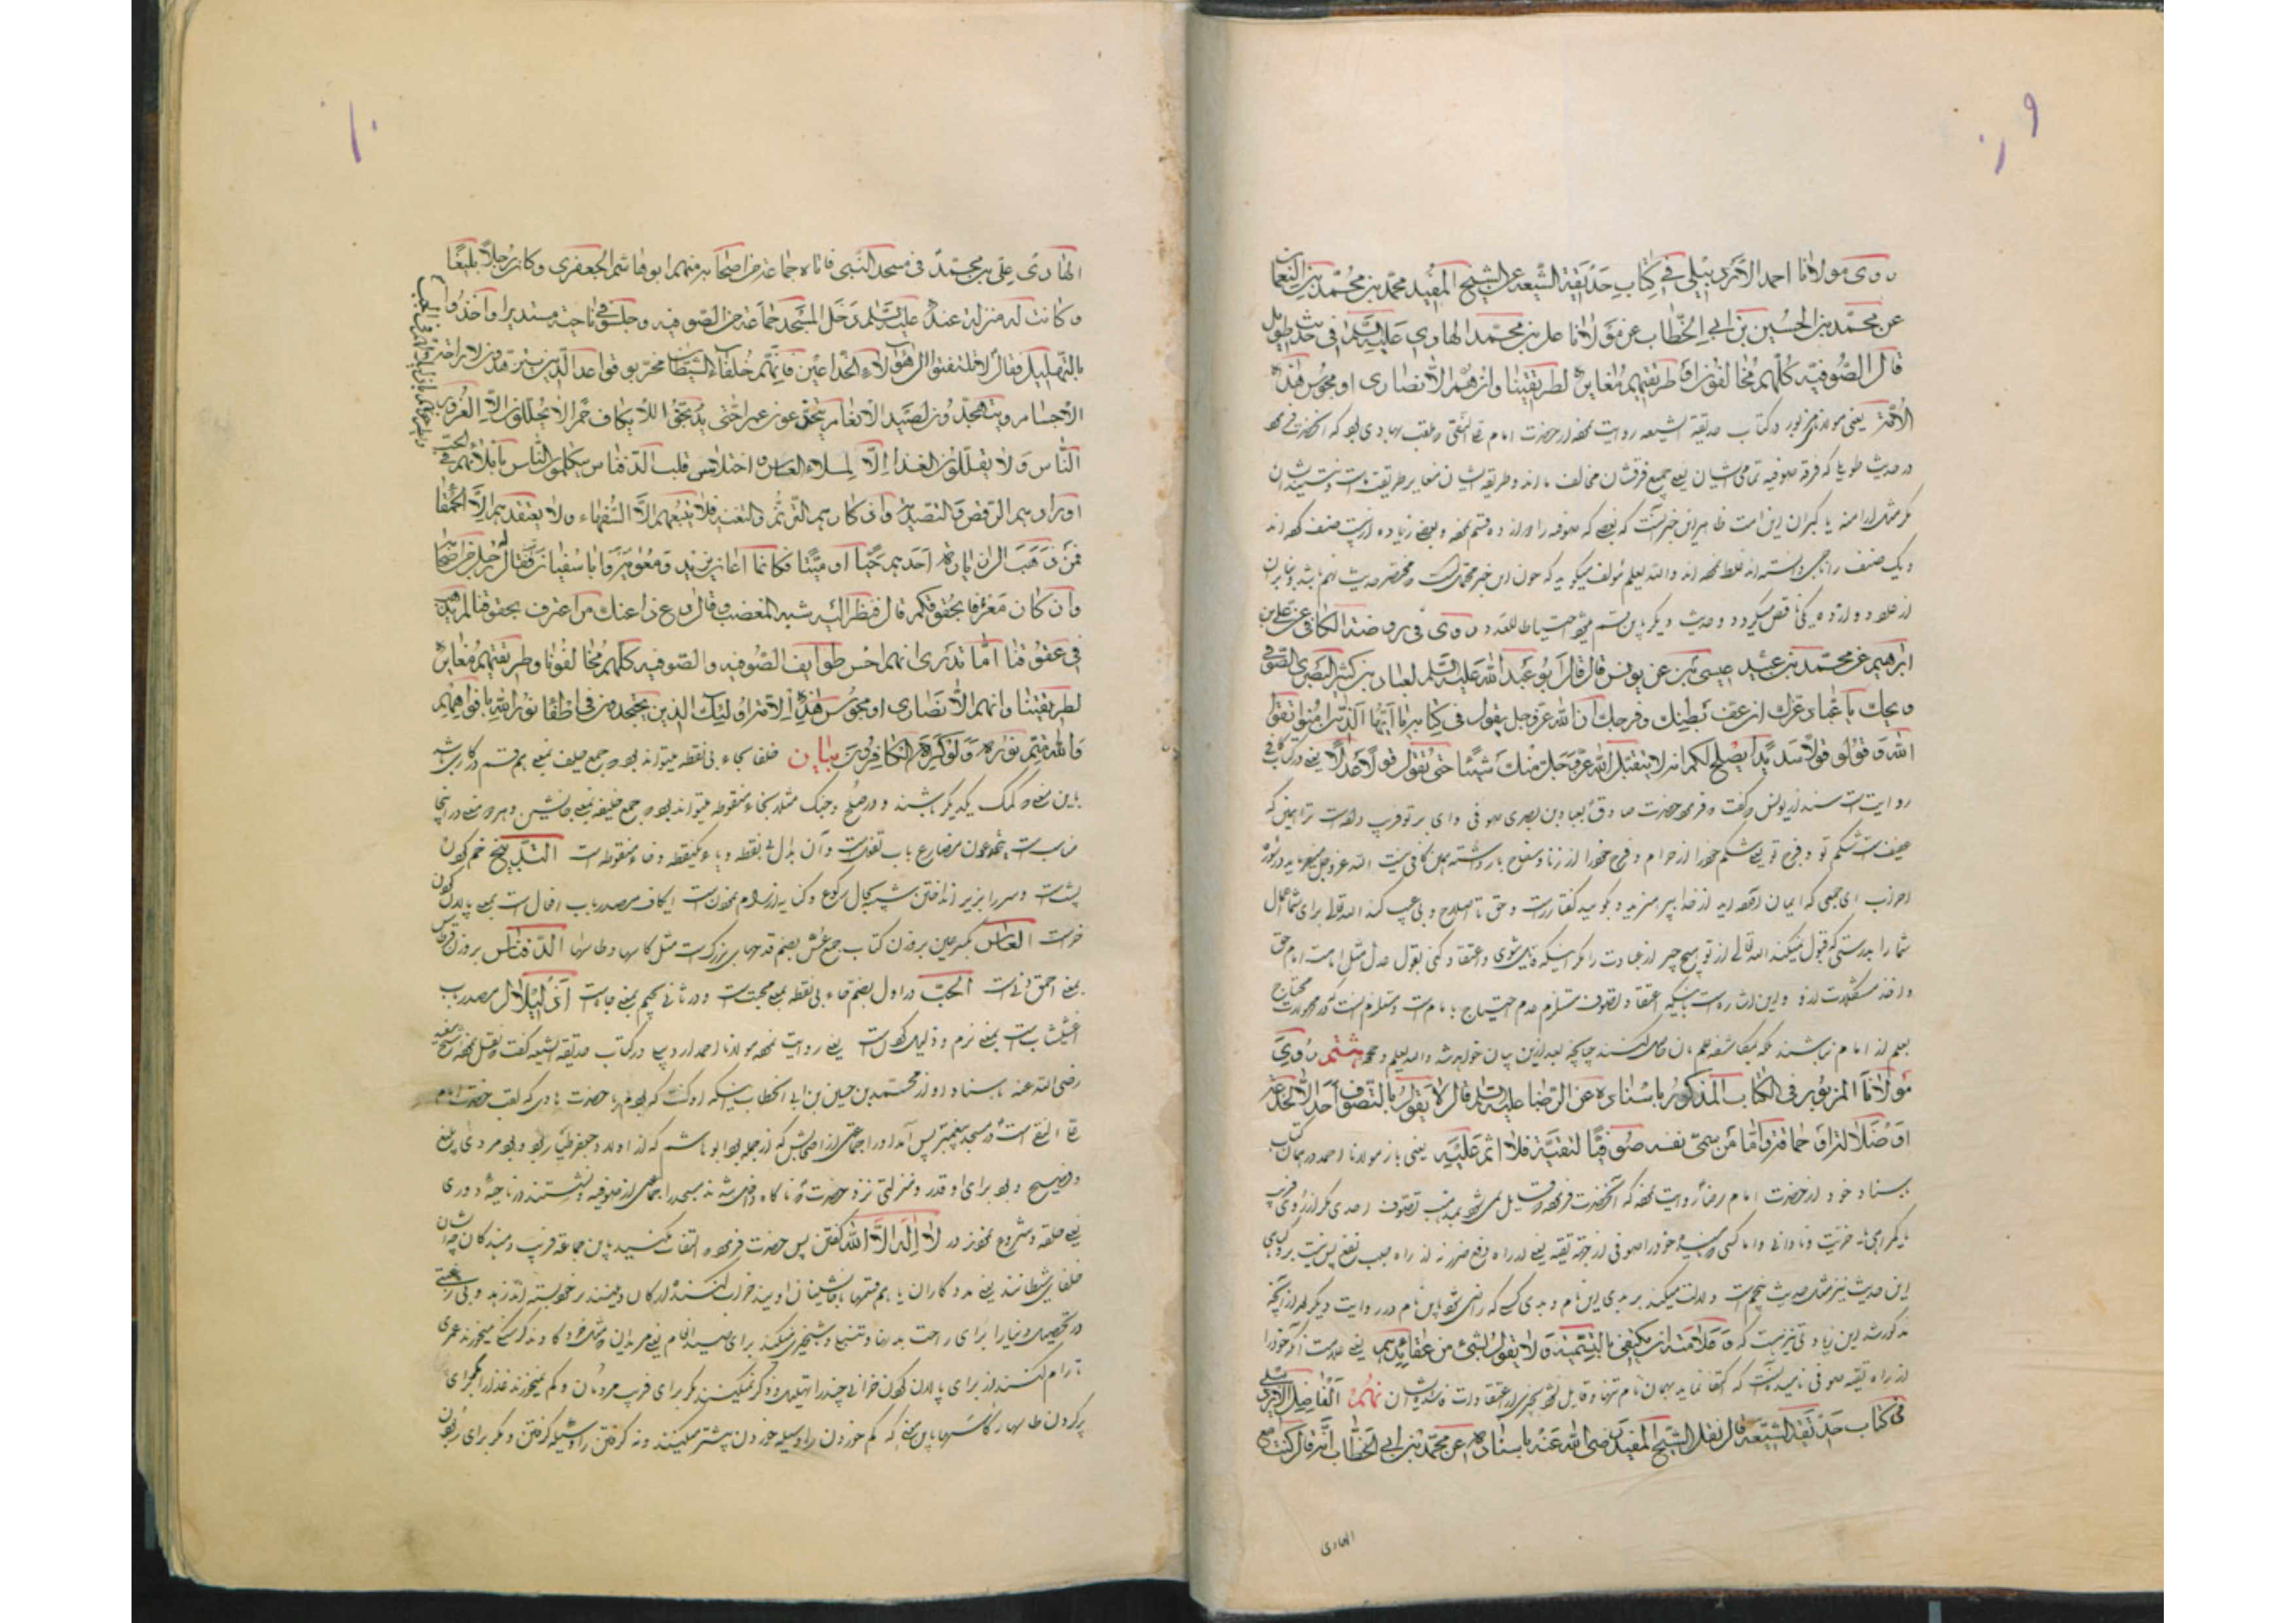 ۹
روی مولانا احمد الاردبیلی فی کتاب حدیقة الشیعه عن الشیخ المفید محمد بن محمد بن النعمان
عن محمد بن الحسین بن ابی الخطاب عن مولانا علی بن محمد الهادی علیه السلم فی حدیث طویل
قال الصوفیه کلهم مخالفونا و طریقتهم مغایرة لطریقتنا وان هم الا نصاری او مجوس هذه
الامّة یعنی مولانای مزبور در کتاب حدیقة الشیعه روایت نموده از حضرت امام علی النقی ملقب بهادی بود که آنحضرت فرمود
در حدیث طویلی که فرقه صوفیه تمامی ایشان یعنی جمیع فرقشان مخالف مااند و طریقه ایشان مغایر طریقت ماست و نیستند ایشان
مگر مثل ترسا منه یا گبران این امت ظاهر این خبر آنست که بعضی که صوفیه را
و یک صنف را ناجی دانسته اند غلط نموده اند والله یعلم مؤلف میگوید که چون این خبر
از علاوه دوازده یکی ناقص میگردد و حدیث دیگر باین قسم میشود روی فی روضة الکافی عن علی بن
ابرهیم عن محمد بن عیسی عن یونس قال قال ابو عبد الله علیه السلم لعباد بن کثیر البصری الصوفی
ویحک یا عباد غرک ان عف بطنک و فرجک ان الله عز وجل یقول فی کتابه یا ایها الذین امنوا اتقوا
الله و قولوا قولا سدیدا یصلح لکم اعمالکم انه لا یتقبل الله عز و جل منک شیئا حتی تقول قولا عدلا یعنی در کافی
روایت است بسند از یونس که گفت فرمود حضرت صادق بعباد بن بصری صوفی وای بر تو فریب داده است ترا همین که
عفیف است شکم تو و فرج تو یعنی شکم خود را از حرام و فرج خود را از زنا و سفاح باز داشته همین کافی نیست الله عز وجل میفرماید در سوره
احزاب ای جمعی که ایمان آورده اید از خدا بپرهیزید و بگویید گفتار راست و حق تا اصلاح و بی عیب کند الله تعالی برای شما اعمال
شما را بدرستی که قبول نمیکند الله تعالی از تو هیچ چیز از عبادت را مگر اینکه قایل شوی و اعتقاد کنی بقول عدل مثل امامت امام حق
و اخذ مشکلات از او و این اشاره است باینکه اعتقاد تصوف مستلزم عدم احتیاج بامام است
بعلم از امام نباشند بلکه بمکاشفه علم بآن حاصل کنند چنانچه بعد ازین بیان خواهد شد والله یعلم هشتم روی
مولانا المزبور فی الکتاب المذکور باسناده عن الرضا علیه السلم قال لا یقول بالتصوف احد الا لخدعة
او ضلالة او حماقة و اما من سمی نفسه صوفیا لتقیة فلا اثم علیه یعنی باز مولانا احمد در همان کتاب
بسناد خود از حضرت امام رضا روایت نموده که آنحضرت فرمود قایل نمی شود بمذهب تصوف احدی مگر از روی فریب
یا گمراهی یا خریت و نادانی و اما کسی که بنامد خود را صوفی از جهة تقیه یعنی از راه دفع ضرر نه از راه جلب نفع پس نیست بر او گناهی
این حدیث نیز مثل حدیث پنجم است دلالت میکند بر بدی این نام و بدی کسی که راضی شود باین نام و در روایت دیگر بعد از آنچه
مذکور شد این زیادتی نیز هست که و علامته ان یکتفی بالتسمیة و لا یقول بشئ من عقائدهم یعنی علامت آنکه خود را
از راه تقیه صوفی نامیده آنست که اکتفا نماید بهمان نام تنها و قایل نشود بچیزی از اعتقادات فاسده ایشان نهم الفاضل الاردبیلی
فی کتاب حدیقة الشیعه قال نقل الشیخ المفید رضی الله عنه باسناده عن محمد بن ابی الخطاب انه قال کنت مع
الهادی
۱۰
الهادی علی بن محمد فی مسجد النبی فاتاه جماعة من اصحابه منهم ابو هاشم الجعفری و کان رجلا بلیغا
و کانت له منزلة عنده علیه السلم ثم دخل المسجد جماعة من الصوفیه و جلسوا فی ناحیة مستدیرا و اخذوا
بالتهلیل فقال لا تلتفتوا الی هؤلاء الخداعین فانهم خلفاء الشیطان و مخربو قواعد الدین یتزهدون لاراحة
الاجسام و یتهجدون لصید الانعام یتجوعون عمرا حتی یدبخوا للایکاف حمرا لا یهللون الا لغرور
الناس و لا یقللون الغذاء الا لملاء العساس و اختلاس قلب الدفناس یکلمون الناس باملائهم فی الحب
اورادهم الرقص و التصدیة و اذکارهم الترنم و التغنیة فلا یتبعهم الا السفهاء و لا یعتقد بهم الا الحمقاء
فمن ذهب الی زیارة احد منهم حیا او میتا فکانما اعان یزید و معویة و ابا سفیان فقال له رجل من اصحابه
و ان کان معترفا بحقوقکم قال فنظر الیه شبه المغضب و قال دع ذا عنک من اعترف بحقوقنا لم یذهب
فی عقوقنا اما تدری انهم اخس طوایف الصوفیه و الصوفیه کلهم مخالفونا و طریقتهم مغایرة
لطریقتنا و ان هم الا نصاری او مجوس هذه الامة اولئک الذین یجهدون فی اطفاء نور الله بافواههم
والله متم نوره و لو کره الکافرون بیان خلفا بحاء بی نقطه میتواند بود جمع حلیف بمعنی هم قسم در کار باشد
باین معنی که کمک یکدیگر باشند و در صلح و جنگ مثلا و بخاء منقوطه میتواند بود جمع خلیفه بمعنی جانشین و هر دو معنی در اینجا
مناسب است یتجوعون مضارع باب تفعل است و آن بدال بی نقطه و باء یکنقطه و خاء منقوطه است التدبیخ خم کردن
پشت و سر را بزیر انداختن شبیه بحال رکوع و کنایه از رام نمودن است ایکاف مصدر باب افعال است بمعنی پالان کردن
خر است العساس بکسر عین بر وزن کتاب جمع عس بضم قدحهای بزرگ است مثل کاسها و طاسها الدفناس بر وزن قرطاس
بمعنی احمق دنی است الحب در اول بضم حاء بی نقطه بمعنی محبت است و در ثانی بجیم بمعنی چاه است اذلیلال مصدر باب
اعشیشاب است بمعنی نرم و ذلیل کردن است یعنی روایت نموده مولانا احمد اردبیلی در کتاب حدیقة الشیعه گفت نقل نموده شیخ مفید
رضی الله عنه باسناد او از محمد بن حسین بن ابی الخطاب اینکه او گفت که بودم با حضرت هادی که لقب حضرت امام
علی النقی است در مسجد پیغمبر پس آمد او را جماعتی از اصحابش که از جمله بود ابو هاشم که از اولاد جعفر طیار بود و بود مردی بلیغ
و فصیح و بود برای او قدر و منزلتی نزد حضرت ناگاه داخل شدند مسجد را جماعتی از صوفیه و نشستند در ناحیه دوری
یعنی حلقه و شروع نمودند در لا اله الا الله گفتن پس حضرت فرمود التفات مکنید باین جماعة فریب دهندگان چه ایشان
خلفای شیطانند یعنی مددکاران یا هم قسمها یا جانشینان اویند خراب کنندهٔ ارکان دینند
در تحصیل دنیا را برای راحت بدنها و تهجد و شبخیزی میکنند برای صید انعام یعنی مریدان و گرسنگی میخورند عمری
تا رام کنند از برای پالان کردن خرانی چند را تهلیل و ذکر نمیکنند مگر برای فریب مردمان و کم نمیخورند غذا را مگر برای
پر کردن طاسها و کاسها باین معنی که کم خوردن را وسیله خوردن بیشتر میکنند و نه گرفتن را وسیله گرفتن و مگر برای ربودن